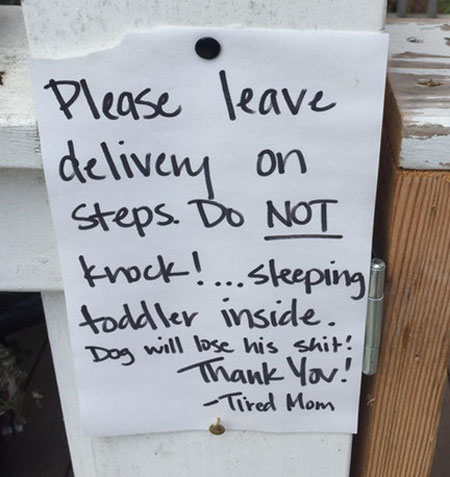 Please leave
delivery on
steps. Do NOT
knock!...sleeping
toddler inside.
Dog will lose his shit!
Thank You!
-Tired Mom